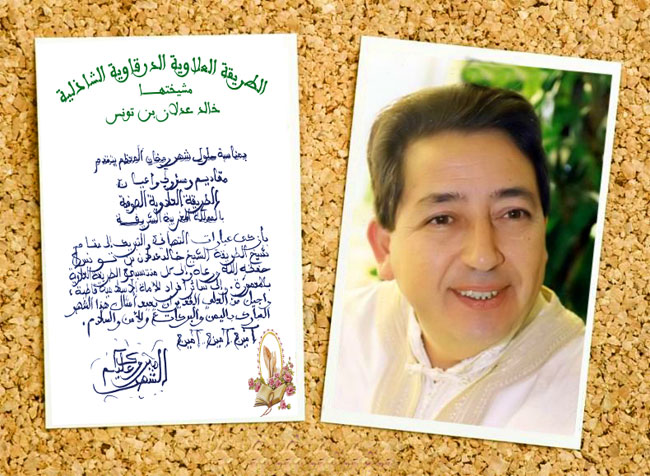 الطريقة العلاوية الدرقاوية الشاذلية
مشيختها
خالد عدلان بن تونس
بمناسبة حلول شهر رمضان المعظم يتقدم
مقاديم و
الطريقة العلاوية الصوفية
بالمملكة المغربية الشريفة
بأزكى عبارات التهاني والتبريك إلى مقام
شيخ الطريقة الشيخ خالد عدلان بن تونس
حفظه الله ورعاه وإلى كل منتسبي الطريقة العلاوية
بالمعمورة، وإلى كافة أفراد الأمة الإسلامية قاطبة،
من العلي القدير أن يعيد أمثال هذا الشهر
باليمن والبركات والأمن والسلام.
آمين آمين آمين
الشهر